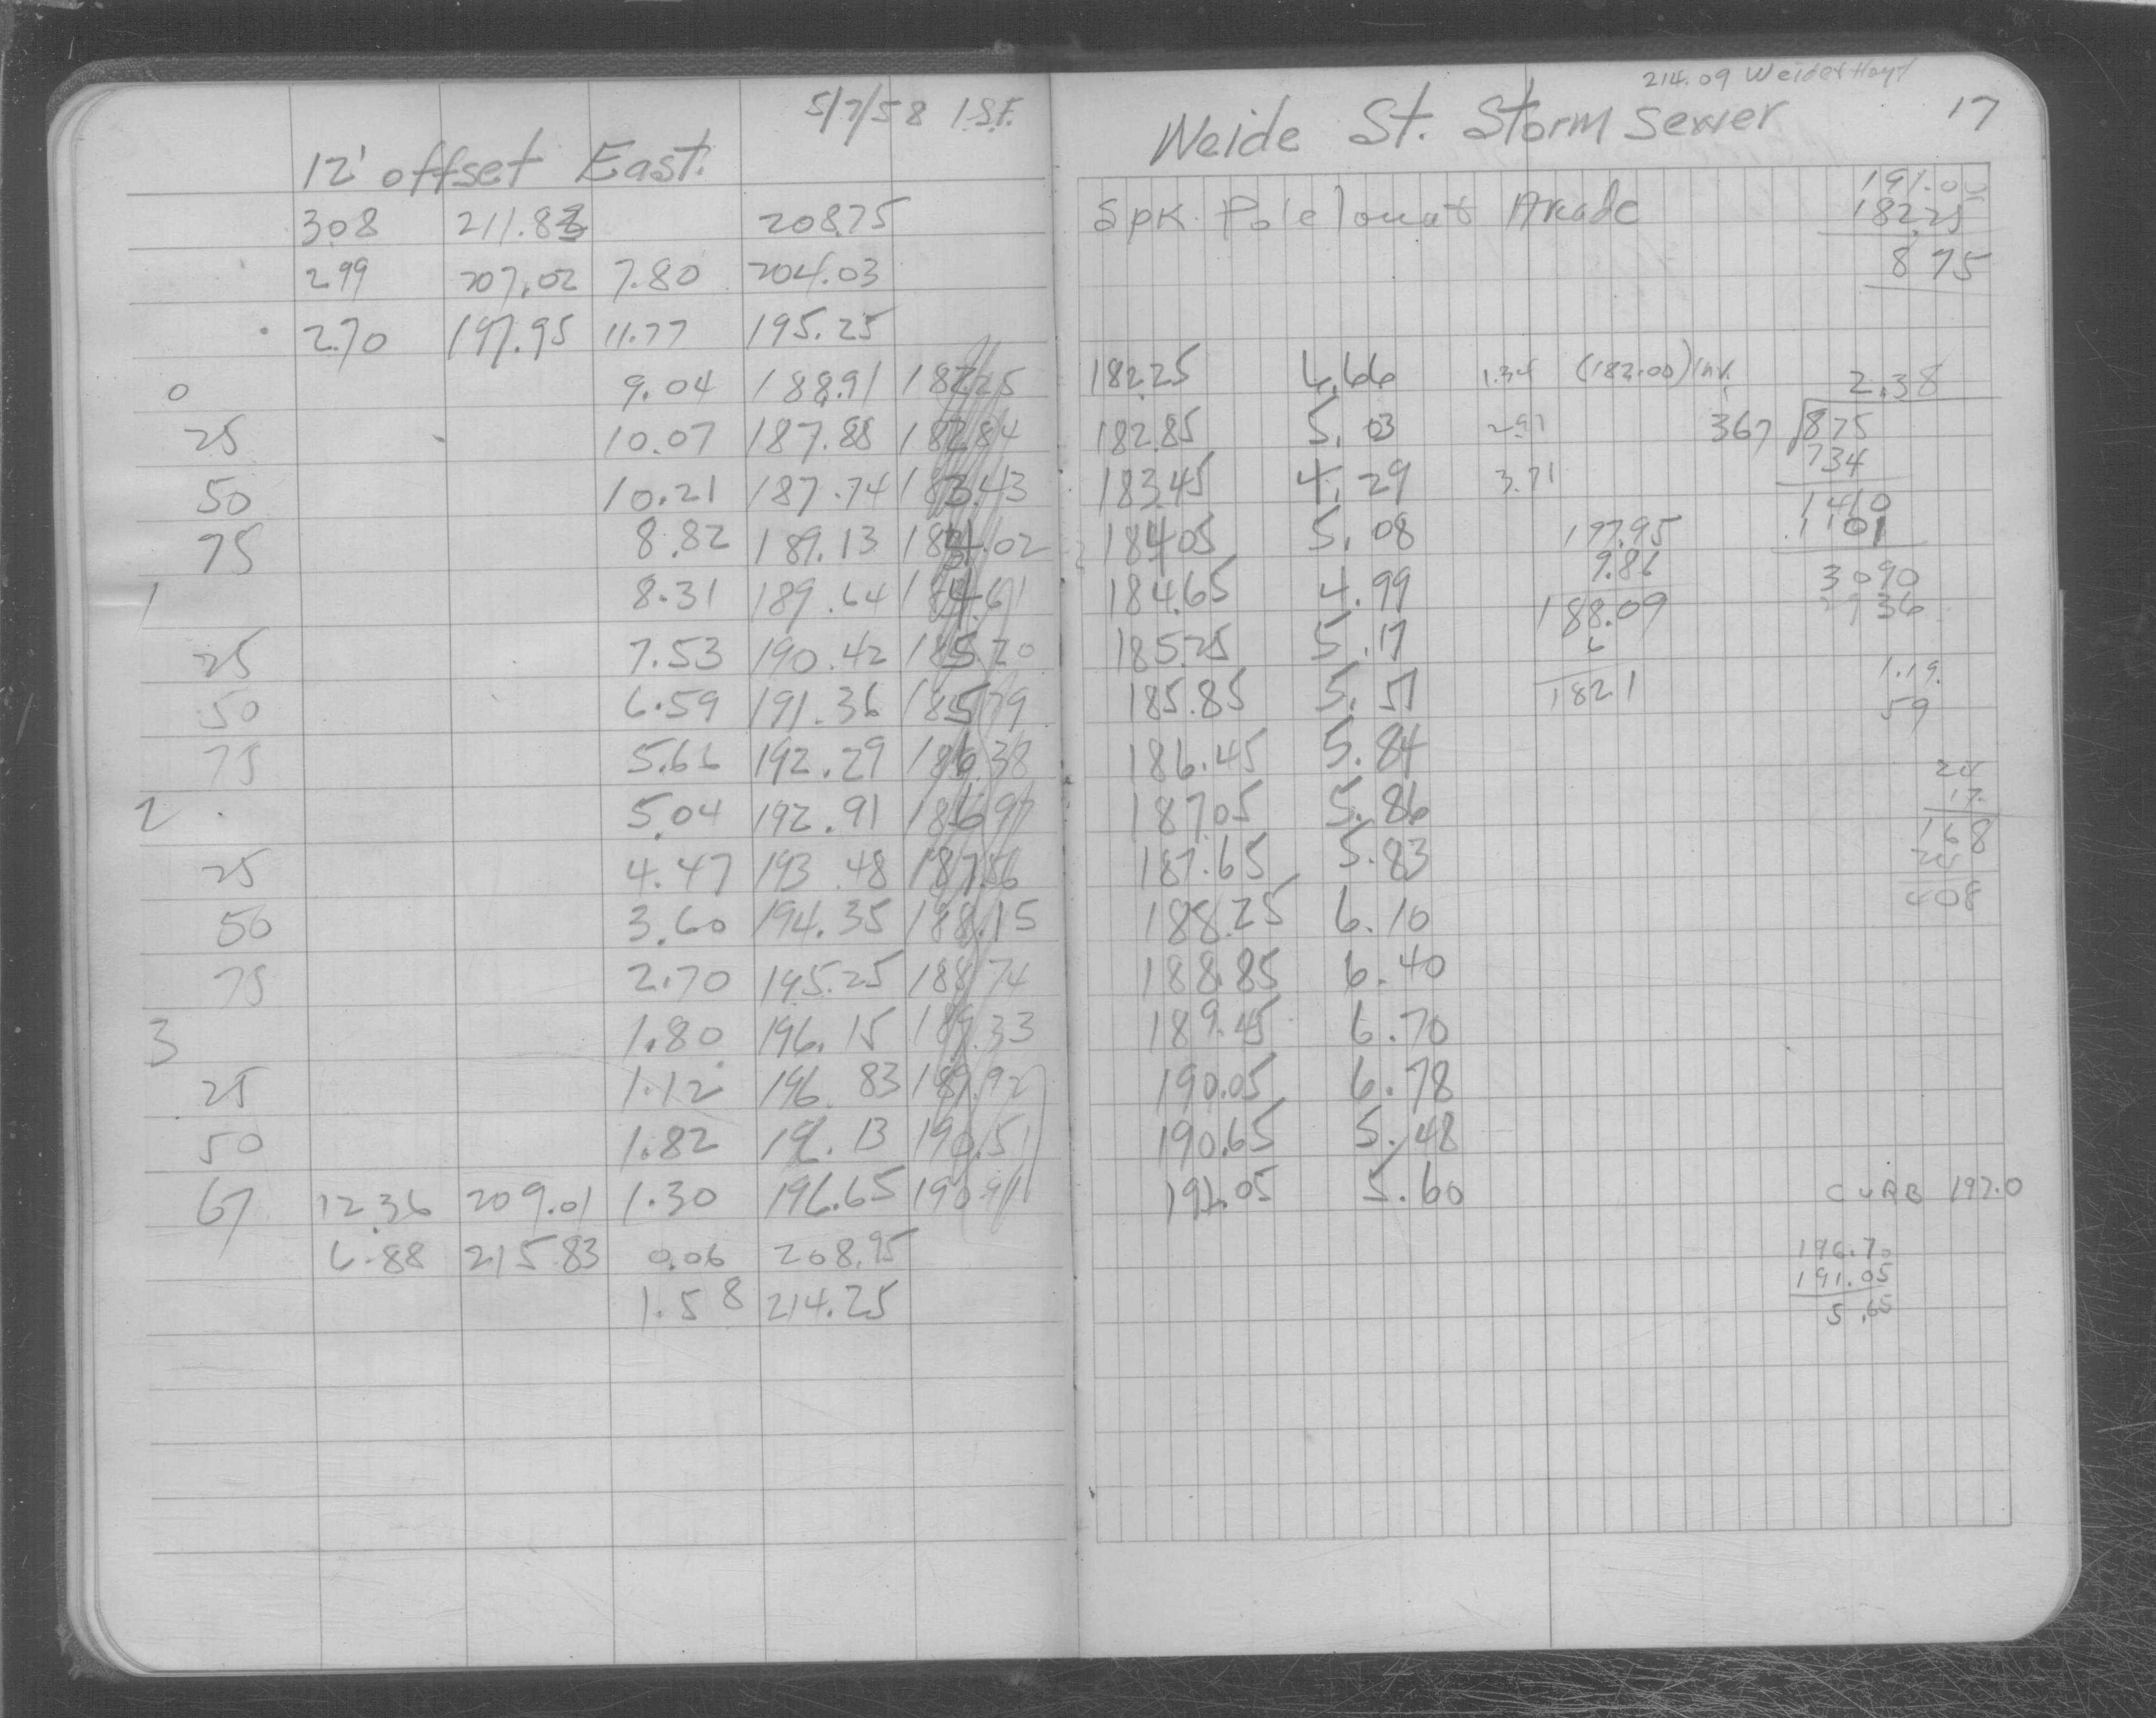 5/7/58 I.S.F.
12' offset East.
3.08 211.83 208.75
2.99 207.02 7.80 204.03
2.70 197.95 11.77 195.25
0 9.04 188.91 182.25
25 10.07 187.88 182.84
50 10.21 187.74 183.43
75 8.82 189.13 184.02
1 8.31 189.64 184.61
25 7.53 190.42 185.20
50 6.59 191.36 185.79
75 5.66 192.29 186.38
2 5.04 192.91 186.97
25 4.47 193.48 187.56
50 3.60 194.35 188.15
75 2.70 195.25 188.74
3 1.80 196.15 189.33
25 1.12 196.83 189.92
50 1.82 196.13 190.51
67 12.36 209.01 1.30 196.65 190.91
6.88 215.83 0.06 208.95
1.58 214.25
214.09 Weide + Hoyt
17
Weide St. Storm Sewer
Spk. Pole Arcade
191.00
182.25
8 75
182.25 6.66 1.34 (182.00) Inv.
182.85 5.03 2.97
183.45 4.29 3.71
184.05 5.08
184.65 4.99
185.25 5.17
185.85 5.51
186.45 5.84
187.05 5.86
187.65 5.83
188.25 6.10
188.85 6.40
189.45 6.70
190.05 6.78
190.65 5.48
191.05 5.60
2.38
367 875
734
1410
1101
3090
2936
197.95
9.86
188.09
6
182.1
1.19
59
24
17
168
24
408
CURB 197.0
196.70
191.05
5.65